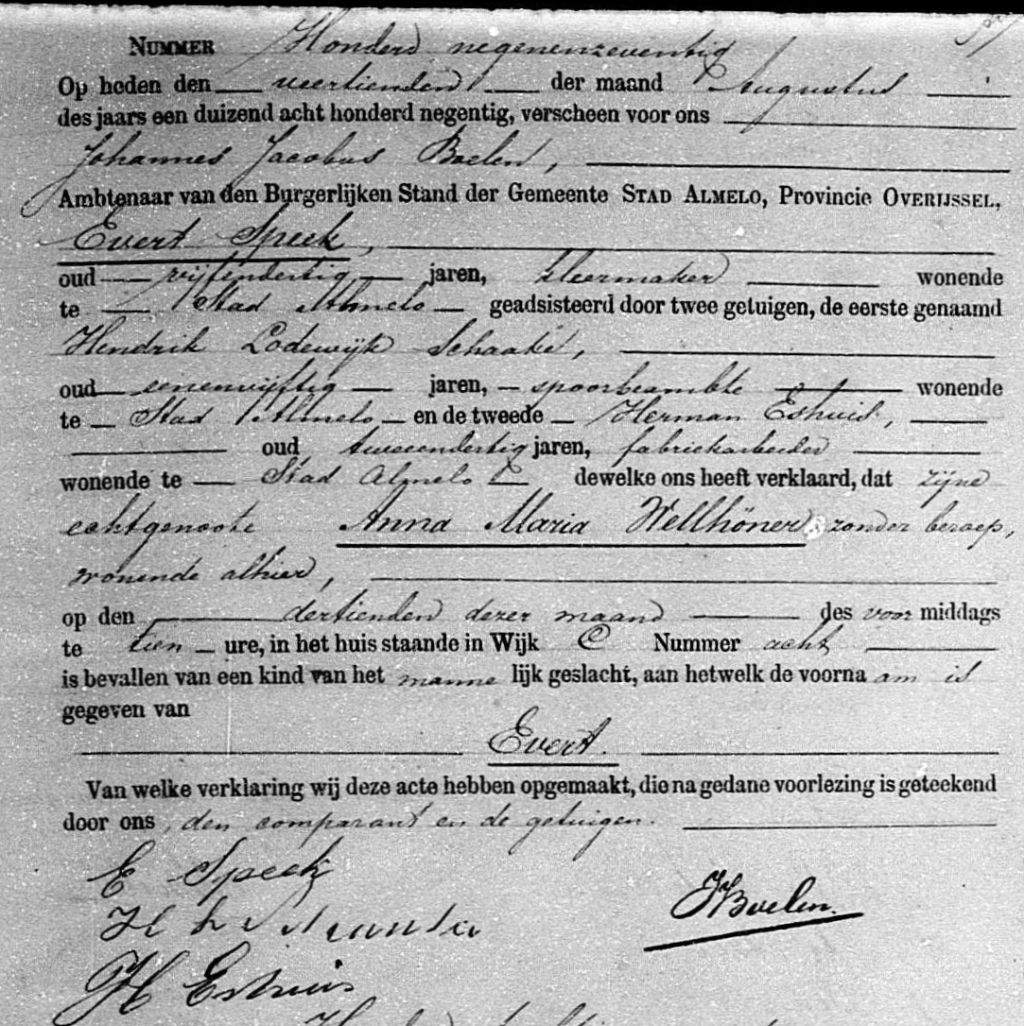 NUMMER Honderd negenenzeventig
Op heden den veertienden der maand Augustus
des jaars een duizend acht honderd negentig, verscheen voor ons
Johannes Jacobus Boelen,
Ambtenaar van den Burgerlijken Stand der Gemeente STAD ALMELO, Provincie OVERIJSSEL,
Evert Speek,
oud vijfendertig jaren, kleermaker wonende
te Stad Almelo geadsisteerd door twee getuigen, de eerste genaamd
Hendrik Lodewijk Schaake,
oud eenenvijftig jaren, spoorbeambte wonende
te Stad Almelo en de tweede Herman Eshuis,
oud tweeendertig jaren, fabriekarbeider
wonende te Stad Almelo dewelke ons heeft verklaard, dat zijne
echtgenoote Anna Maria Wellhöner, zonder beroep,
wonende alhier,
op den dertienden dezer maand des voor middags
te tien ure, in het huis staande in Wijk C Nummer acht
is bevallen van een kind van het manne lijk geslacht, aan hetwelk de voorna am is
gegeven van
Evert.
Van welke verklaring wij deze acte hebben opgemaakt, die na gedane voorlezing is geteekend
door ons, den comparant en de getuigen.
E Speek
JJBoelen.
H L
H Eshuis